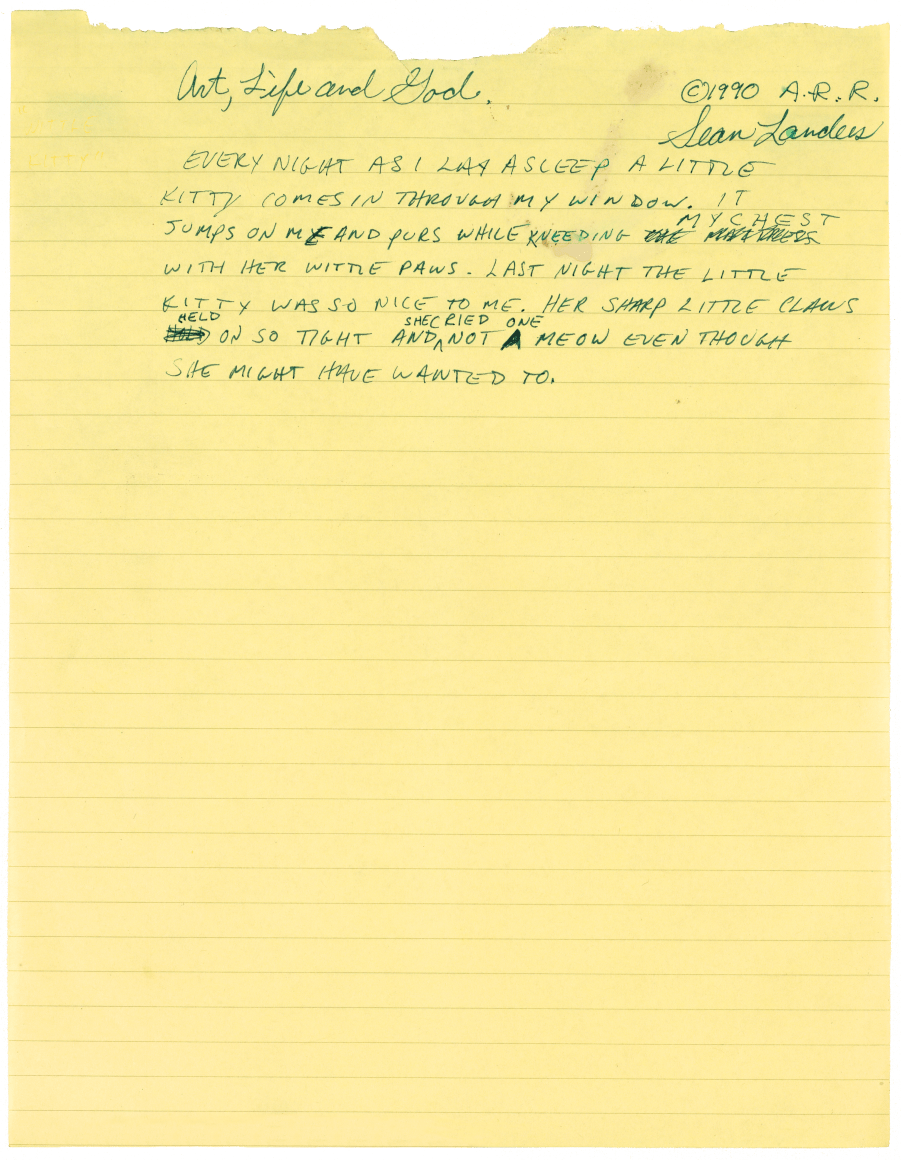 Art, Life and God.
©1990 A.R.R.
Sean Landers
EVERY NIGHT AS I LAY ASLEEP A LITTLE
KITTY COMES IN THROUGH MY WINDOW. IT
MY CHEST
JUMPS ON ME AND PURS WHILE KNEEDING THE MATTRESS
WITH HER WITTLE PAWS. LAST NIGHT THE LITTLE
KITTY WAS SO NICE TO ME. HER SHARP LITTLE CLAWS
HELD SHE CRIED ONE
ON SO TIGHT AND NOT A MEOW EVEN THOUGH
SHE MIGHT HAVE WANTED TO.
KITTY"